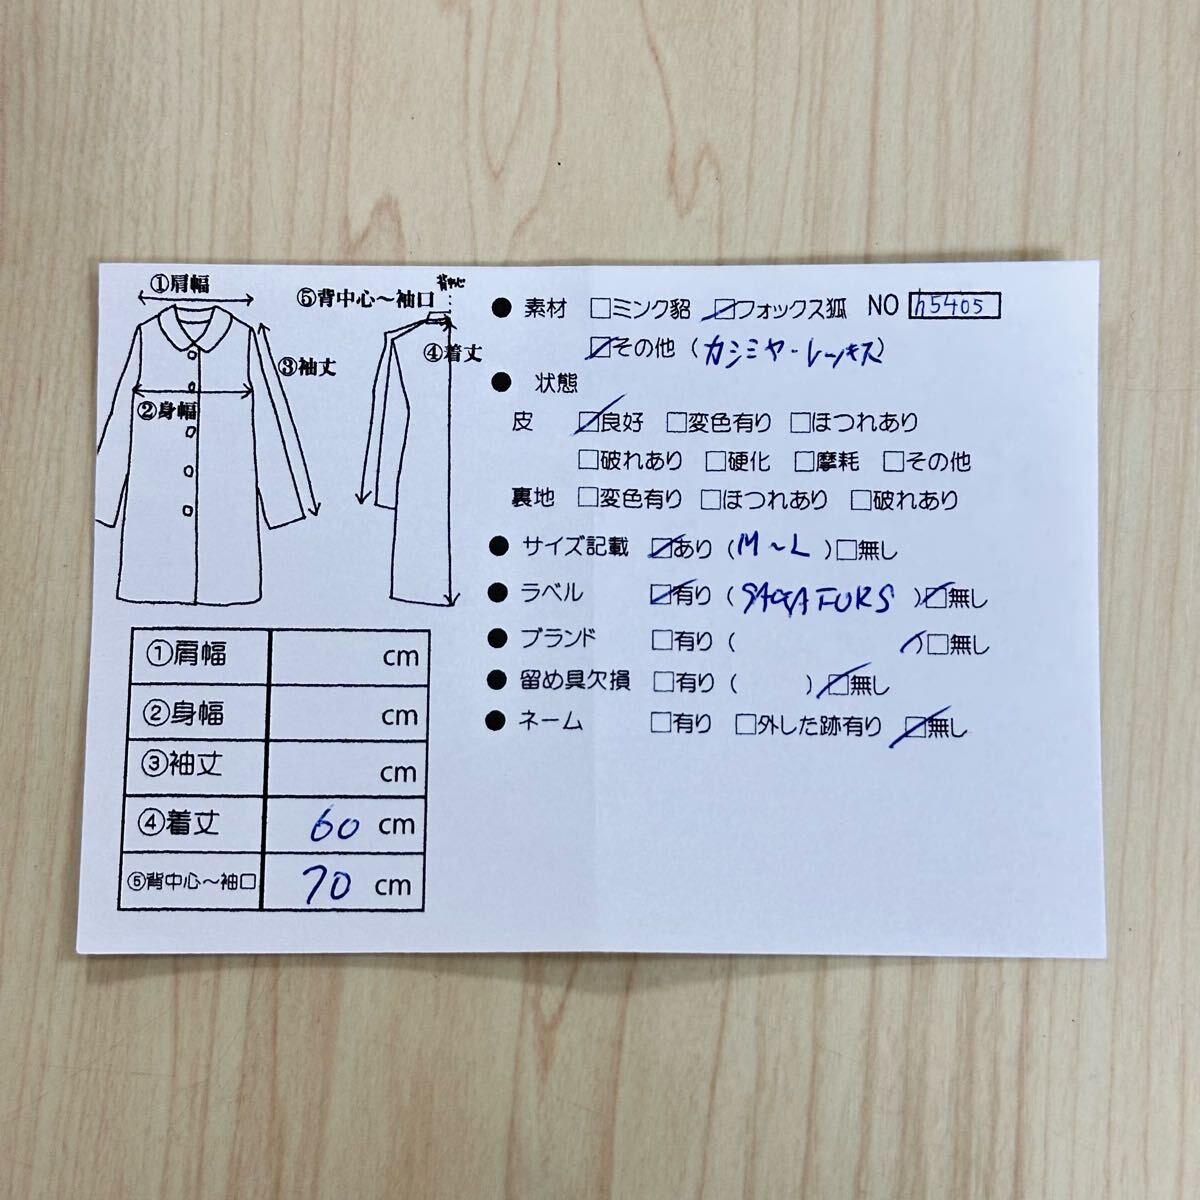 ①肩幅
⑤背中心～袖口
背中心
④着丈
③袖丈
②身幅
● 素材 □ミンク貂 ☑フォックス狐 NO h5405
☑その他 (カシミヤ・レッキス)
● 状態
皮 ☑良好 □変色有り □ほつれあり
□破れあり □硬化 □摩耗 □その他
裏地 □変色有り □ほつれあり □破れあり
● サイズ記載 ☑あり (M～L) □無し
● ラベル ☑有り (SAGA FURS) ☑無し
● ブランド □有り ( ) □無し
● 留め具欠損 □有り ( ) ☑無し
● ネーム □有り □外した跡有り ☑無し
①肩幅 cm
②身幅 cm
③袖丈 cm
④着丈 60 cm
⑤背中心～袖口 70 cm